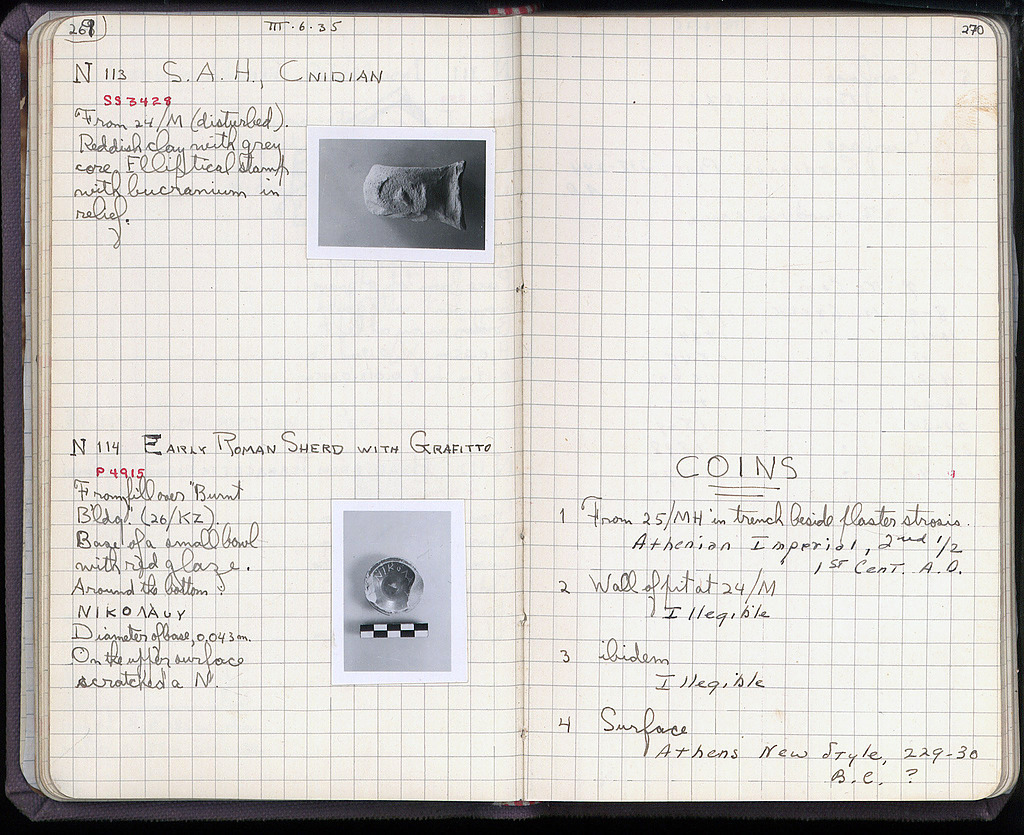 269
III·6·35
N 113 S.A.H., CNIDIAN
SS 3428
From 24/M (disturbed).
Reddish clay with grey
core. Elliptical stamp
with bucranium in
relief.
N 114 EARLY ROMAN SHERD WITH GRAFITTO
P 4915
From fill over "Burnt
Bldg." (26/KZ).
Base of a small bowl
with red glaze.
Around the bottom:
ΝΙΚΟΛΑΟΥ
Diameter of base, 0,043 m.
On the upper surface
scratched a N.
270
COINS
1 From 25/MH in trench beside plaster strosis.
Athenian Imperial, 2nd 1/2
1ST CENT. A.D.
2 Wall of pit at 24/M
Illegible
3 ibidem
Illegible
4 Surface
Athens New Style, 229-30
B.C. ?